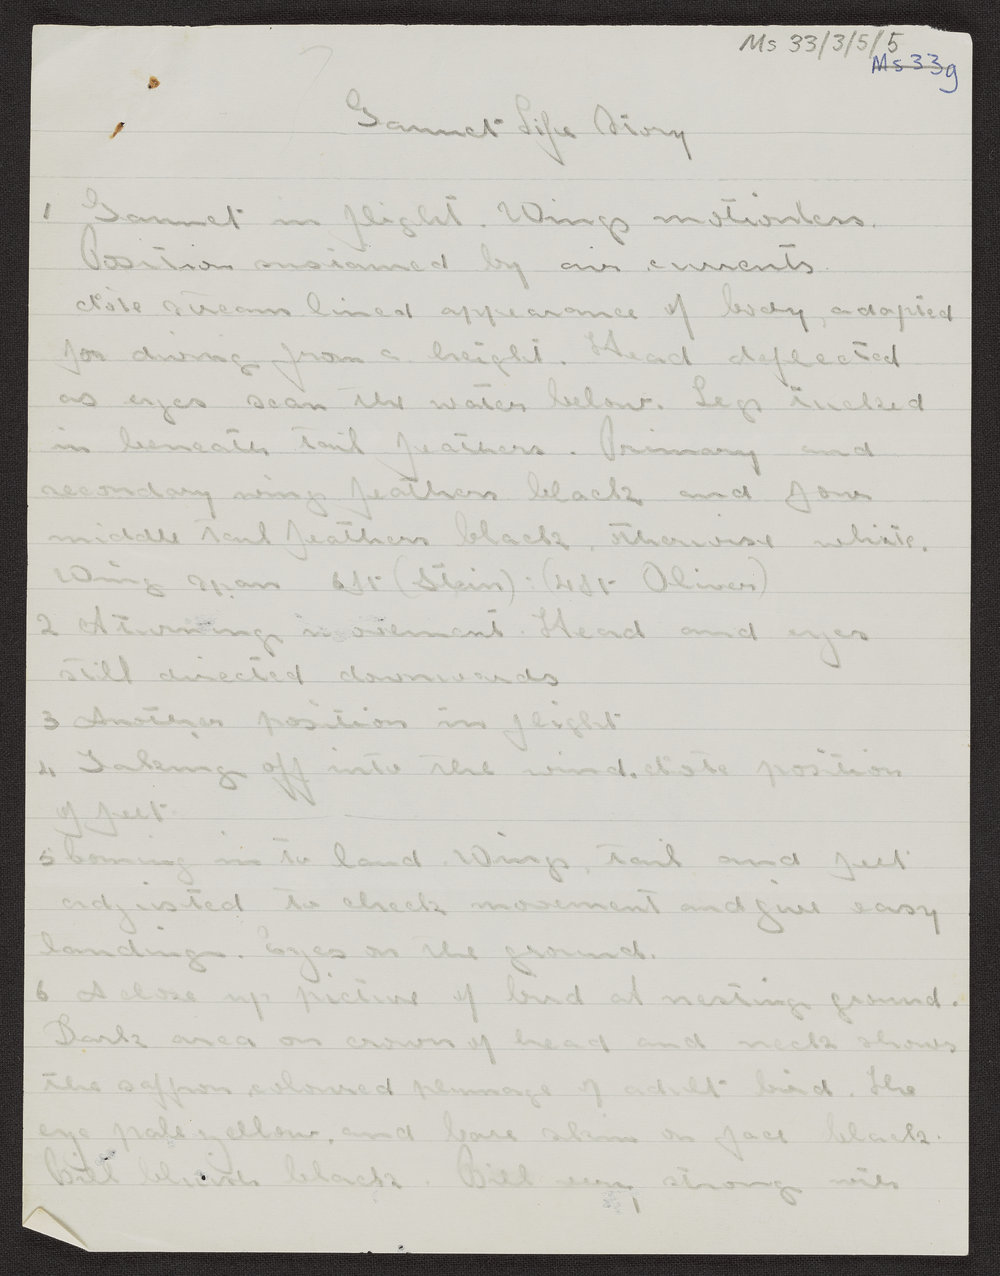 Ms 33/3/5/5
Ms 33g
Gannet Life Story
1 Gannet in flight. Wings motionless.
Position sustained by air currents.
Note stream lined appearance of body, adapted
for diving from a height. Head deflected
as eyes scan the water below. Legs tucked
in beneath tail feathers. Primary and
secondary wing feathers black and four
middle tail feathers black, otherwise white.
Wing span 6ft (Stein): (4ft Oliver)
2 A turning movement. Head and eyes
still directed downwards
3 Another position in flight
4 Taking off into the wind. Note position
of feet.
5 Coming in to land. Wings, tail and feet
adjusted to check movement and give easy
landing. Eyes on the ground.
6 A close up picture of bird at nesting ground.
Dark area on crown of head and neck shows
the saffron coloured plumage of adult bird. The
eye pale yellow, and bare skin on face black.
Bill bluish black. Bill very strong with